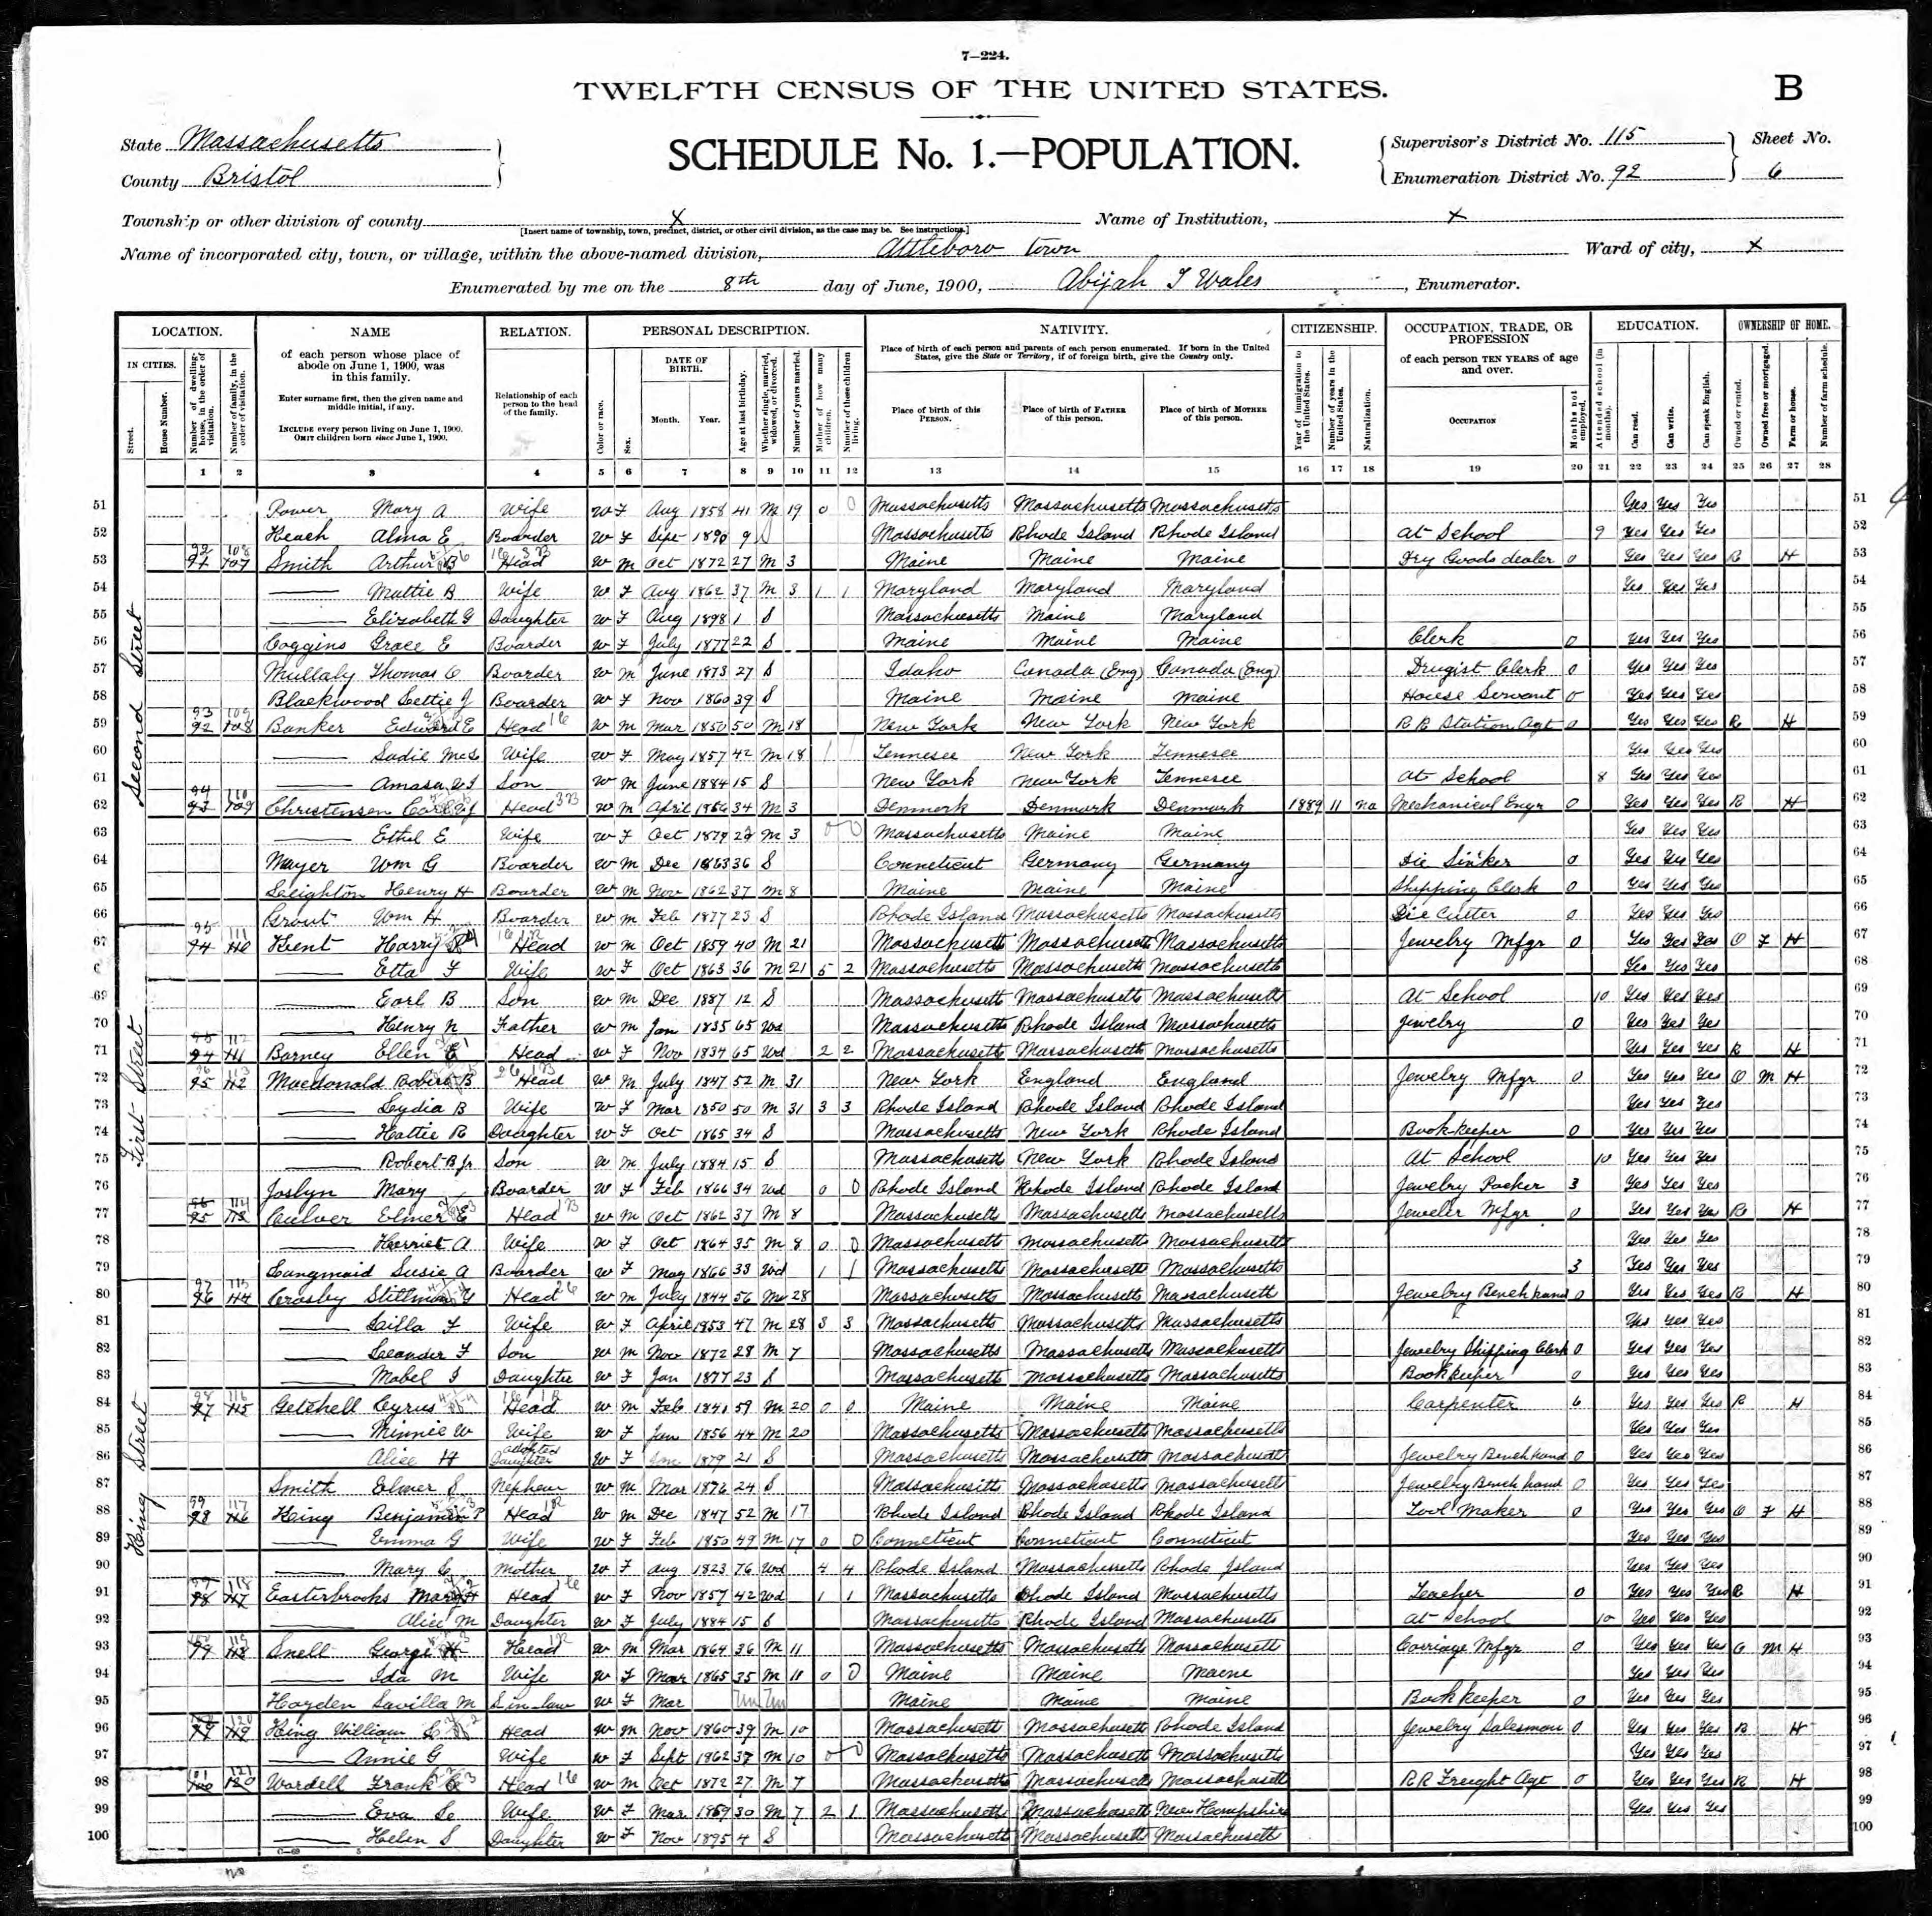 7—224.
TWELFTH CENSUS OF THE UNITED STATES.
B
State Massachusetts
County Bristol
SCHEDULE No. 1.—POPULATION.
Supervisor's District No. 115
Enumeration District No. 92
Sheet No.
6
Township or other division of county X Name of Institution, X
[Insert name of township, town, precinct, district, or other civil division, as the case may be. See instructions.]
Name of incorporated city, town, or village, within the above-named division, Attleboro Town Ward of city, X
Enumerated by me on the 8th day of June, 1900, Abijah T Wales, Enumerator.
LOCATION. NAME RELATION. PERSONAL DESCRIPTION. NATIVITY. CITIZENSHIP. OCCUPATION, TRADE, OR PROFESSION EDUCATION. OWNERSHIP OF HOME.
IN CITIES.
Street.
House Number.
Number of dwelling-house, in the order of visitation.
Number of family, in the order of visitation.
of each person whose place of abode on June 1, 1900, was in this family.
Enter surname first, then the given name and middle initial, if any.
INCLUDE every person living on June 1, 1900.
OMIT children born since June 1, 1900.
Relationship of each person to the head of the family.
Color or race.
Sex.
DATE OF BIRTH.
Month. Year.
Age at last birthday.
Whether single, married, widowed, or divorced.
Number of years married.
Mother of how many children.
Number of these children living.
Place of birth of each person and parents of each person enumerated. If born in the United States, give the State or Territory; if of foreign birth, give the Country only.
Place of birth of this PERSON.
Place of birth of FATHER of this person.
Place of birth of MOTHER of this person.
Year of immigration to the United States.
Number of years in the United States.
Naturalization.
of each person TEN YEARS of age and over.
OCCUPATION
Months not employed.
Attended school (in months).
Can read.
Can write.
Can speak English.
Owned or rented.
Owned free or mortgaged.
Farm or house.
Number of farm schedule.
1 2 3 4 5 6 7 8 9 10 11 12 13 14 15 16 17 18 19 20 21 22 23 24 25 26 27 28
Second Street
First Street
King Street
51 Power Mary A Wife W F Aug 1858 41 M 19 0 0 Massachusetts Massachusetts Massachusetts Yes Yes Yes 51
52 Alma E Boarder W F Sept 1890 9 S Massachusetts Rhode Island Rhode Island At School 9 Yes Yes Yes 52
53 92 108 Smith Arthur B Head W M Oct 1872 27 M 3 Maine Maine Maine Dry Goods dealer 0 Yes Yes Yes R H 53
54 Mattie B Wife W F Aug 1862 37 M 3 1 1 Maryland Maryland Maryland Yes Yes Yes 54
55 Elizabeth G Daughter W F Aug 1898 1 S Massachusetts Maine Maryland 55
56 Coggins Grace E Boarder W F July 1877 22 S Maine Maine Maine Clerk 0 Yes Yes Yes 56
57 Mullaly Thomas C Boarder W M June 1873 27 S Idaho Canada (Eng) Canada (Eng) Drugist Clerk 0 Yes Yes Yes 57
58 Blackwood Lettie J Boarder W F Nov 1860 39 S Maine Maine Maine House Servant 0 Yes Yes Yes 58
59 93 109 Banker Edward E Head W M Mar 1850 50 M 18 New York New York New York R R Station Agt 0 Yes Yes Yes R H 59
60 Sadie McL Wife W F May 1857 42 M 18 1 1 Tennesee New York Tennesee Yes Yes Yes 60
61 Amasa Son W M June 1884 15 S New York New York Tennesee At School 8 Yes Yes Yes 61
62 94 110 Christensen Carl Head W M April 1866 34 M 3 Denmark Denmark Denmark 1889 11 na Mechanical Engr 0 Yes Yes Yes R H 62
63 Ethel E Wife W F Oct M 3 0 0 Massachusetts Maine Maine Yes Yes Yes 63
64 Mayer Wm G Boarder W M Dec 1863 36 S Conneticut Germany Germany Die Sinker 0 Yes Yes Yes 64
65 Leighton Henry H Boarder W M Nov 1862 37 M 8 Maine Maine Maine Shipping Clerk 0 Yes Yes Yes 65
66 Grout Wm H Boarder W M Feb 1877 23 S Rhode Island Massachusetts Massachusetts Die Cutter 0 Yes Yes Yes 66
67 95 111 Kent Harry Head W M Oct 1859 40 M 21 Massachusetts Massachusetts Massachusetts Jewelry Mfgr 0 Yes Yes Yes O F H 67
Etta F Wife W F Oct 1863 36 M 21 5 2 Massachusetts Massachusetts Massachusetts Yes Yes Yes 68
69 Earl B Son W M Dec 1887 12 S Massachusetts Massachusetts Massachusetts At School 10 Yes Yes Yes 69
70 Henry N Father W M Jan 1835 65 Wd Massachusetts Rhode Island Massachusetts Jewelry 0 Yes Yes Yes 70
71 95 112 Barney Ellen E Head W F Nov 1834 65 Wd 2 2 Massachusetts Massachusetts Massachusetts Yes Yes Yes R H 71
72 96 113 Macdonald Robert B Head W M July 1847 52 M 31 New York England England Jewelry Mfgr 0 Yes Yes Yes O M H 72
73 Lydia B Wife W F Mar 1850 50 M 31 3 3 Rhode Island Rhode Island Rhode Island Yes Yes Yes 73
74 Hattie R Daughter W F Oct 1865 34 S Massachusetts New York Rhode Island Bookkeeper 0 Yes Yes Yes 74
75 Robert B Jr Son W M July 1884 15 S Massachusetts New York Rhode Island At School 10 Yes Yes Yes 75
76 Joslyn Mary Boarder W F Feb 1866 34 Wd 0 0 Rhode Island Rhode Island Rhode Island Jewelry Packer 3 Yes Yes Yes 76
77 96 114 Culver Elmer E Head W M Oct 1862 37 M 8 Massachusetts Massachusetts Massachusetts Jeweler Mfgr 0 Yes Yes Yes R H 77
78 Harriet A Wife W F Oct 1864 35 M 8 0 0 Massachusetts Massachusetts Massachusetts Yes Yes Yes 78
79 Langmaid Susie A Boarder W F May 1866 33 Wd 1 1 Massachusetts Massachusetts Massachusetts 3 Yes Yes Yes 79
80 97 115 Crosby Stillman Head W M July 1844 56 M 28 Massachusetts Massachusetts Massachusetts Jewelry Bench hand 0 Yes Yes Yes R H 80
81 Lilla F Wife W F April 1853 47 M 28 3 3 Massachusetts Massachusetts Massachusetts Yes Yes Yes 81
82 Leander F Son W M Nov 1872 28 M 7 Massachusetts Massachusetts Massachusetts Jewelry Shipping Clerk 0 Yes Yes Yes 82
83 Mabel I Daughter W F Jan 1877 23 S Massachusetts Massachusetts Massachusetts Bookkeeper 0 Yes Yes Yes 83
84 98 116 Getchell Cyrus Head W M Feb 1841 59 M 20 0 0 Maine Maine Maine Carpenter 6 Yes Yes Yes R H 84
85 Minnie W Wife W F Jan 1856 44 M 20 Massachusetts Massachusetts Massachusetts Yes Yes Yes 85
86 Alice H adopted Daughter W F Jan 1879 21 S Massachusetts Massachusetts Massachusetts Jewelry Bench hand 0 Yes Yes Yes 86
87 Smith Elmer S Nephew W M Mar 1876 24 S Massachusetts Massachusetts Massachusetts Jewelry Bench hand 0 Yes Yes Yes 87
88 99 117 King Benjamin P Head W M Dec 1847 52 M 17 Rhode Island Rhode Island Rhode Island Tool Maker 0 Yes Yes Yes O F H 88
89 Emma G Wife W F Feb 1850 49 M 17 0 0 Conneticut Conneticut Conneticut Yes Yes Yes 89
90 Mary E Mother W F Aug 1823 76 Wd 4 4 Rhode Island Massachusetts Rhode Island Yes Yes Yes 90
91 99 118 Easterbrooks Mary H Head W F Nov 1857 42 Wd 1 1 Massachusetts Rhode Island Massachusetts Teacher 0 Yes Yes Yes R H 91
92 Alice M Daughter W F July 1884 15 S Massachusetts Rhode Island Massachusetts At School 10 Yes Yes Yes 92
93 100 119 Snell George H Head W M Mar 1864 36 M 11 Massachusetts Massachusetts Massachusetts Carriage Mfgr 0 Yes Yes Yes O M H 93
94 Ida M Wife W F Mar 1865 35 M 11 0 0 Maine Maine Maine Yes Yes Yes 94
95 Hayden Savilla M S in law W F Mar Un Un Maine Maine Maine Bookkeeper 0 Yes Yes Yes 95
96 120 King William C Head W M Nov 1860 39 M 10 Massachusetts Massachusetts Rhode Island Jewelry Salesman 0 Yes Yes Yes R H 96
97 Annie G Wife W F Sept 1862 37 M 10 0 0 Massachusetts Massachusetts Massachusetts Yes Yes Yes 97
98 101 121 Wardell Frank Head W M Oct 1872 27 M 7 Massachusetts Massachusetts Massachusetts R R Freight Agt 0 Yes Yes Yes R H 98
99 Eva Le Wife W F Mar 1869 30 M 7 2 1 Massachusetts Massachusetts New Hampshire Yes Yes Yes 99
100 Helen S Daughter W F Nov 1895 4 S Massachusetts Massachusetts Massachusetts 100